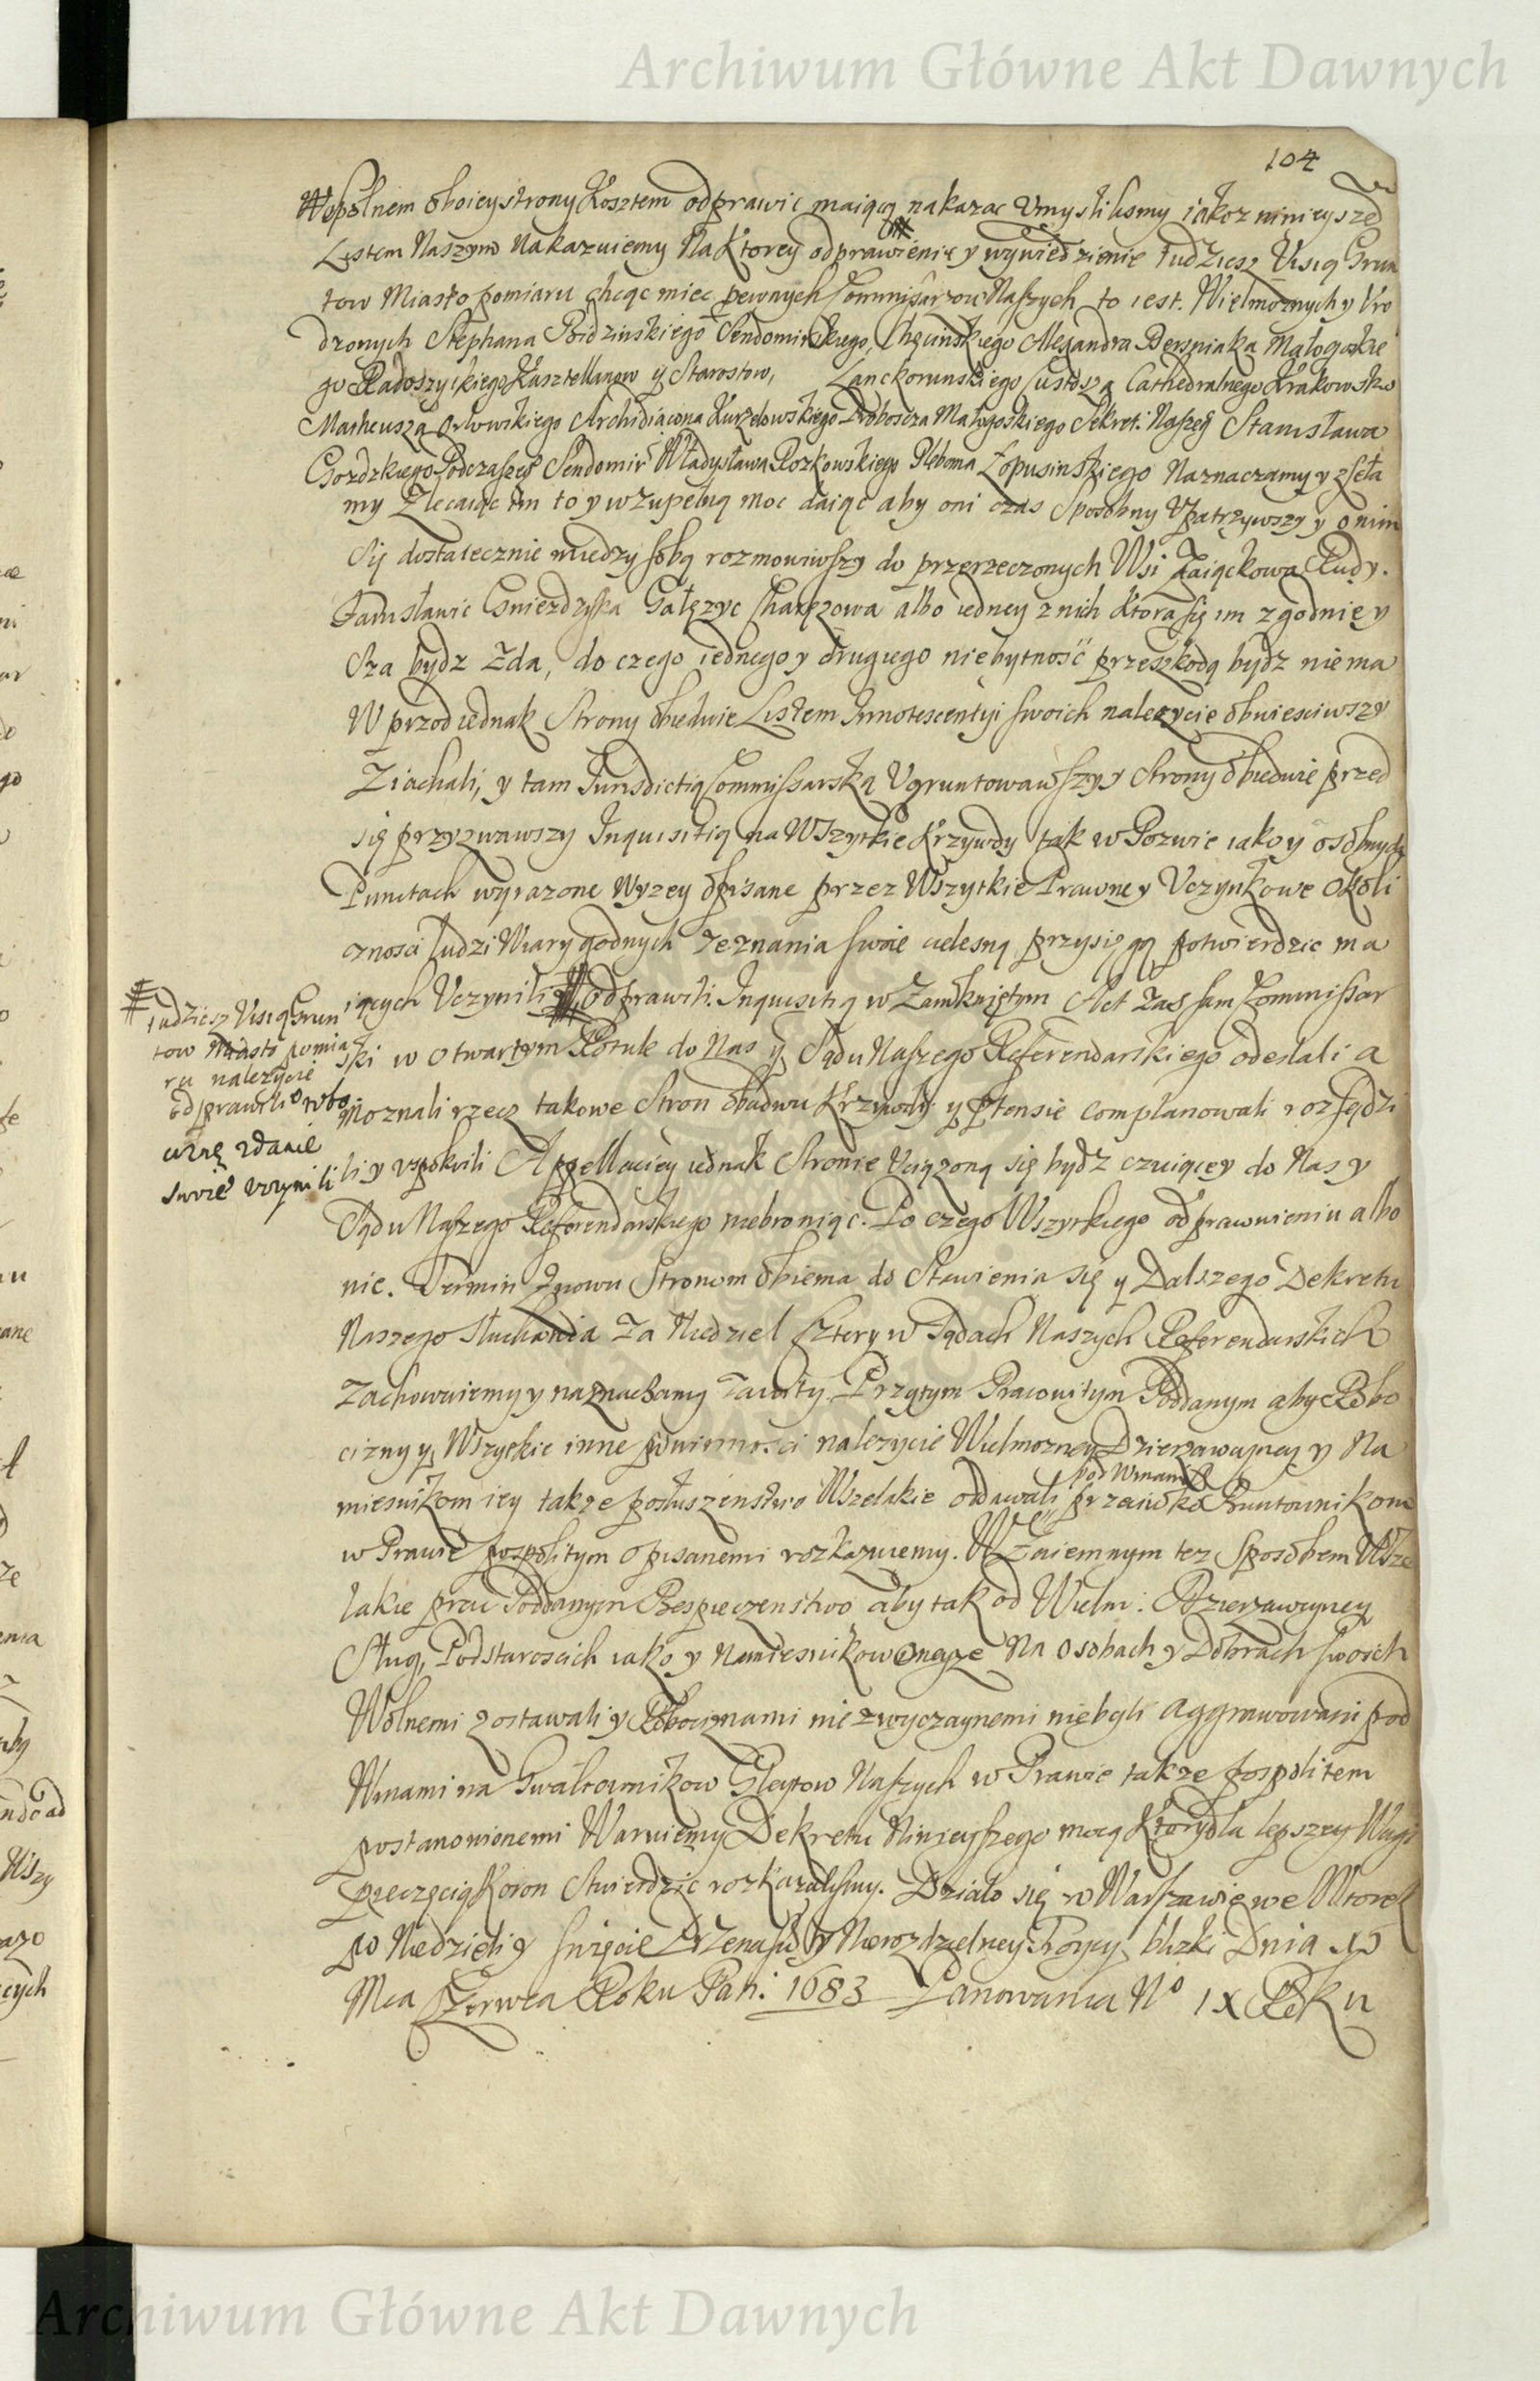 Archiwum Główne Akt Dawnych
104
Wspolnem oboiey strony Kosztem odprawic maiącą nakazac Vmyslilismy iakoz ninieyszed
Listem Naszym Nakazuiemy Na Ktorey odprawienie y wywiedzienie tudziesz Visią Grun
tow Miasto pomiaru chcąc miec pewnych Commissarzow Naszych to iest. Wielmoznych y Vro
dzonych Stephana Bidzinskiego Sendomirskiego, Chęcinskiego Alexandra Bersniaka Małogoskie
go Radoszyckiego Kasztellanow y Starostow, Lanckorunskiego Custosza Cathedralnego Krakowsko
Matheusza Orłowskiego Archidiacona Kurzelowskiego Proboscza Małogoskiego Sekret: Naszeg Stanisława
Gozdzkiego Podczaszeg Sendomir Władysława Rozkowskiego Plebana Łopusinskiego Naznaczamy y zseła
my Zlecaiąc im to y w zupełną moc daiąc aby oni czas Sposobny Vpatrzywszy y o nim
Się dostatecznie miedzy sobą rozmowiwszy do przerzeczonych Wsi Zaiączkowa Rudy.
Jamsławic Gniezdziska Gałęzyc Charęzowa albo iedney z nich Ktora się im zgodnie y
sza bydz zda, do czego iednego y drugiego niebytność przeszkodą bydz niema
W przod iednak Strony obiedwie Listem Innotescentyi swoich nalezycie obwiesciwszy
Ziachali, y tam Jurisdictią Commissarską Vgruntowawszy y Strony obiedwie przed
się przyzwawszy Inquisitią na Wszytkie Krzywdy tak w Pozwie iako y osobnych
Punctach wyrazone Wyzey opisane przez Wszytkie Prawne y Vczynkowe Okoli
cznosci ludzi Wiary godnych zeznania swoie cielesną przysięgą potwierdzic ma
iących Vczynili y odprawili. Inquisitią w Zamkniętym Act zas sam Commissar
ski w Otwartym Rotule do Nas y Sądu Naszego Referendarskiego odeslali a
Moznali rzecz takowe Stron obudwu Krzywdy y ptensie complanowali rozsędzi
li y vspokoili Appellaciey iednak Stronie Vciązoną się bydz czuiącey do Nas y
Sądu Naszego Referendarskiego niebroniąc. Po czego Wszytkiego odprawieniu albo
nie. Termin Znowu Stronom obiema do Stawienia się y Dalszego Dekretu
Naszego Słuchania Za Niedziel Cztery w Sądach Naszych Referendarskich
Zachowuiemy y naznaczamy zawity. Przytym Pracowitym Poddanym aby Robo
cizny y Wszytkie inne powinnosci nalezycie Wielmozney Dzierzawczyney y Na
miesnikom iey takze posłuszenstwo Wszelakie oddawali pod Winami przeciwko Buntownikom
w Prawie pospolitym opisanemi rozkazuiemy. Wzaiemnym tez Sposobem Wsze
lakie pmu Poddanym Bespieczenstwo aby tak od Wielm: Dzierzawczyney
Sług, Podstaroscich iako y Namiesnikow oneyze Na Osobach y Dobrach swoich
Wolnemi zostawali y Robociznami nie zwyczaynemi nie byli aggrawowani pod
Winami na Gwałtownikow Gleytow Naszych w Prawie takze pospolitem
postanowionemi Waruiemy Dekretu Ninieyszego mocą Ktory dla lepszey Wagi
pieczęcią Koron Stwierdzic rozkazalismy. Działo się w Warszawie we Wtorek
po Niedzieli y swięcie Przenaswt y Nierozdzielney Troycy blizki Dnia 15
Mca Czerwca Roku Pan: 1683 Panowania No IX Roku
tudziesz Visią Grun
tow Miasto pomia
ru nalezycie
odprawili
zdanie
swoie vczynili
Archiwum Główne Akt Dawnych